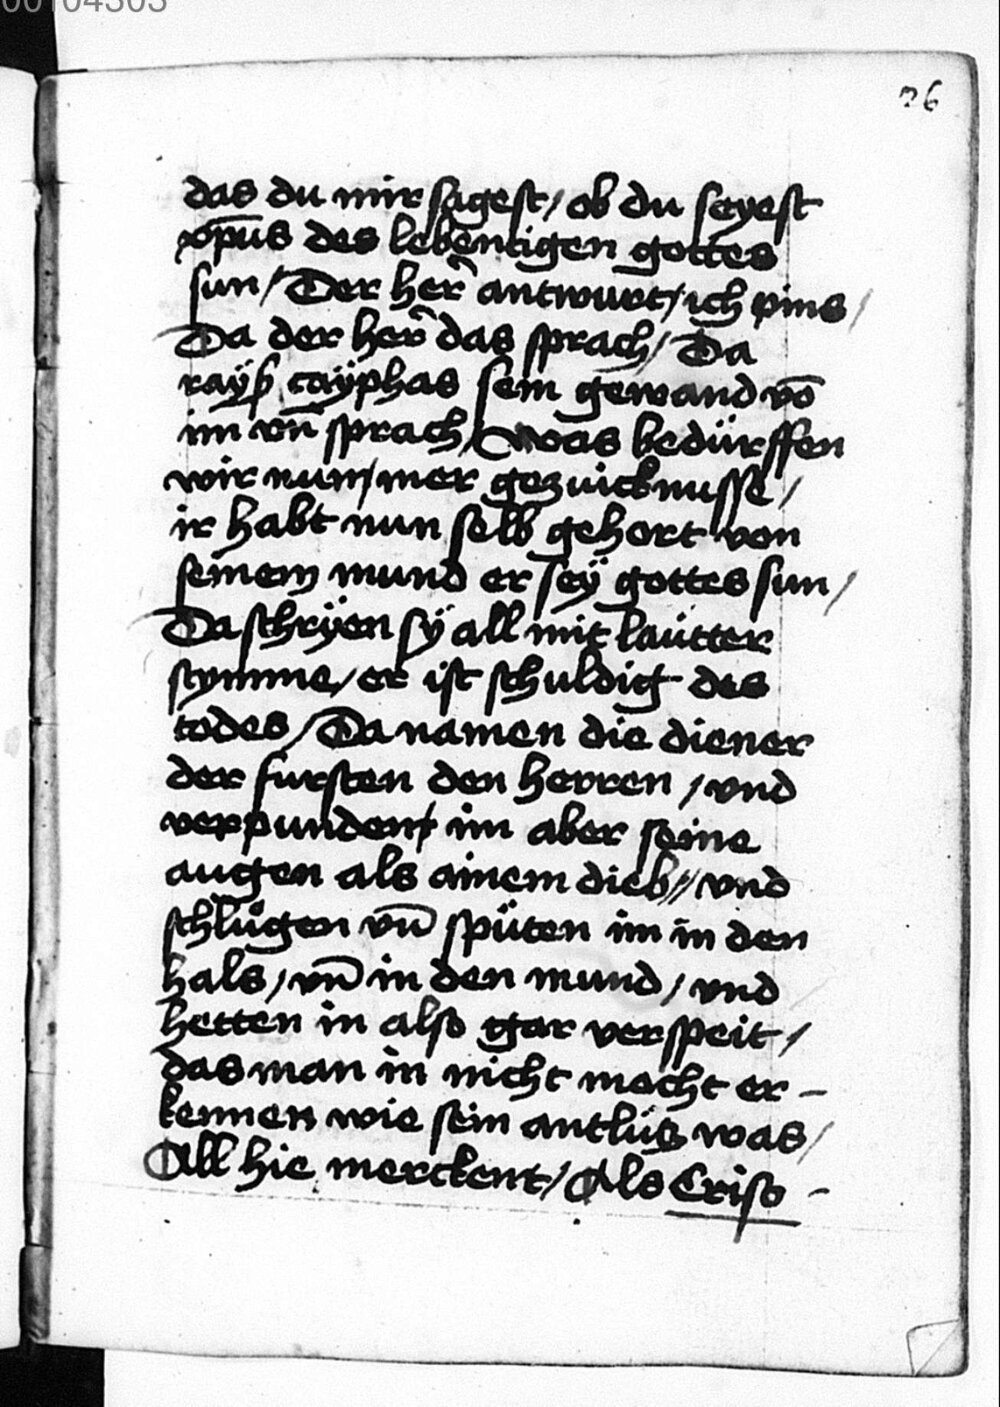 00104303
36
das du mir sagest / ob du seyest
xp̄us des lebentigen gottes
sun / Der her̄ antwurt / ich pins /
Da der her̄ das sprach / Da
rayß cayphas sein gewand vō
im vn̄ sprach / Was bedürffen
wir nun / mer gezuicknusse /
ir habt nun selb gehort von
seinem mund er seÿ gottes sun /
Da schrÿen sÿ all mit lautter
stymme / er ist schuldig des
todes / Da namen die diener
der fursten den herren / vnd
verpunden im aber seine
augen als ainem dieb // vnd
schlůgen vn̄ spüten im in den
hals / vn̄ in den mund / vnd
hetten in also gar verspeit /
das man in nicht mocht er -
kennen wie sein antlütz was /
All hie merckent / Als Criso -